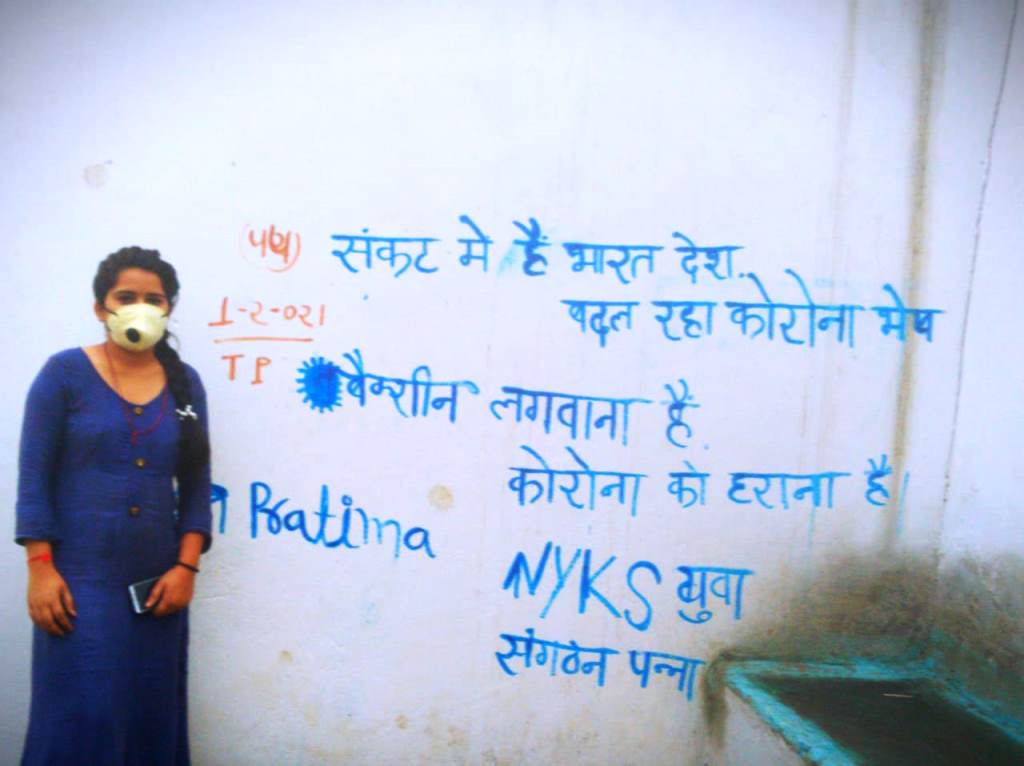 संकट मे हैं भारत देश..
बदल रहा कोरोना भेष
1-2-021
TP
वैक्शीन लगवाना हैं.
कोरोना को हराना है।
Pratima
NYKS युवा
संगठन पन्ना